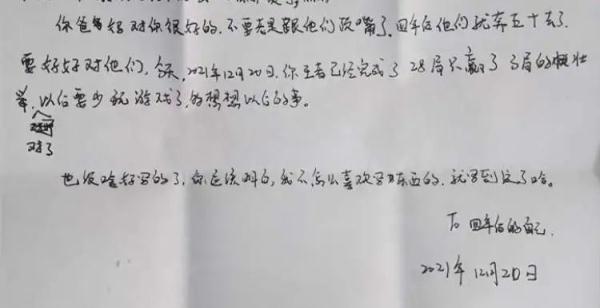 你爸爸好对你很好的,不要老是跟他们顶嘴了,四年后他们就奔五十去了.
要好好对他们,今天,2021年12月20日,你王者已经完成了28局只赢了3局的壮
举,以后要少玩游戏了,多想想以后的事。
对了
也没啥好写的了,你应该明白,我不怎么喜欢写东西的.就写到这了哈。
To 四年后的自己.
2021年12月20日